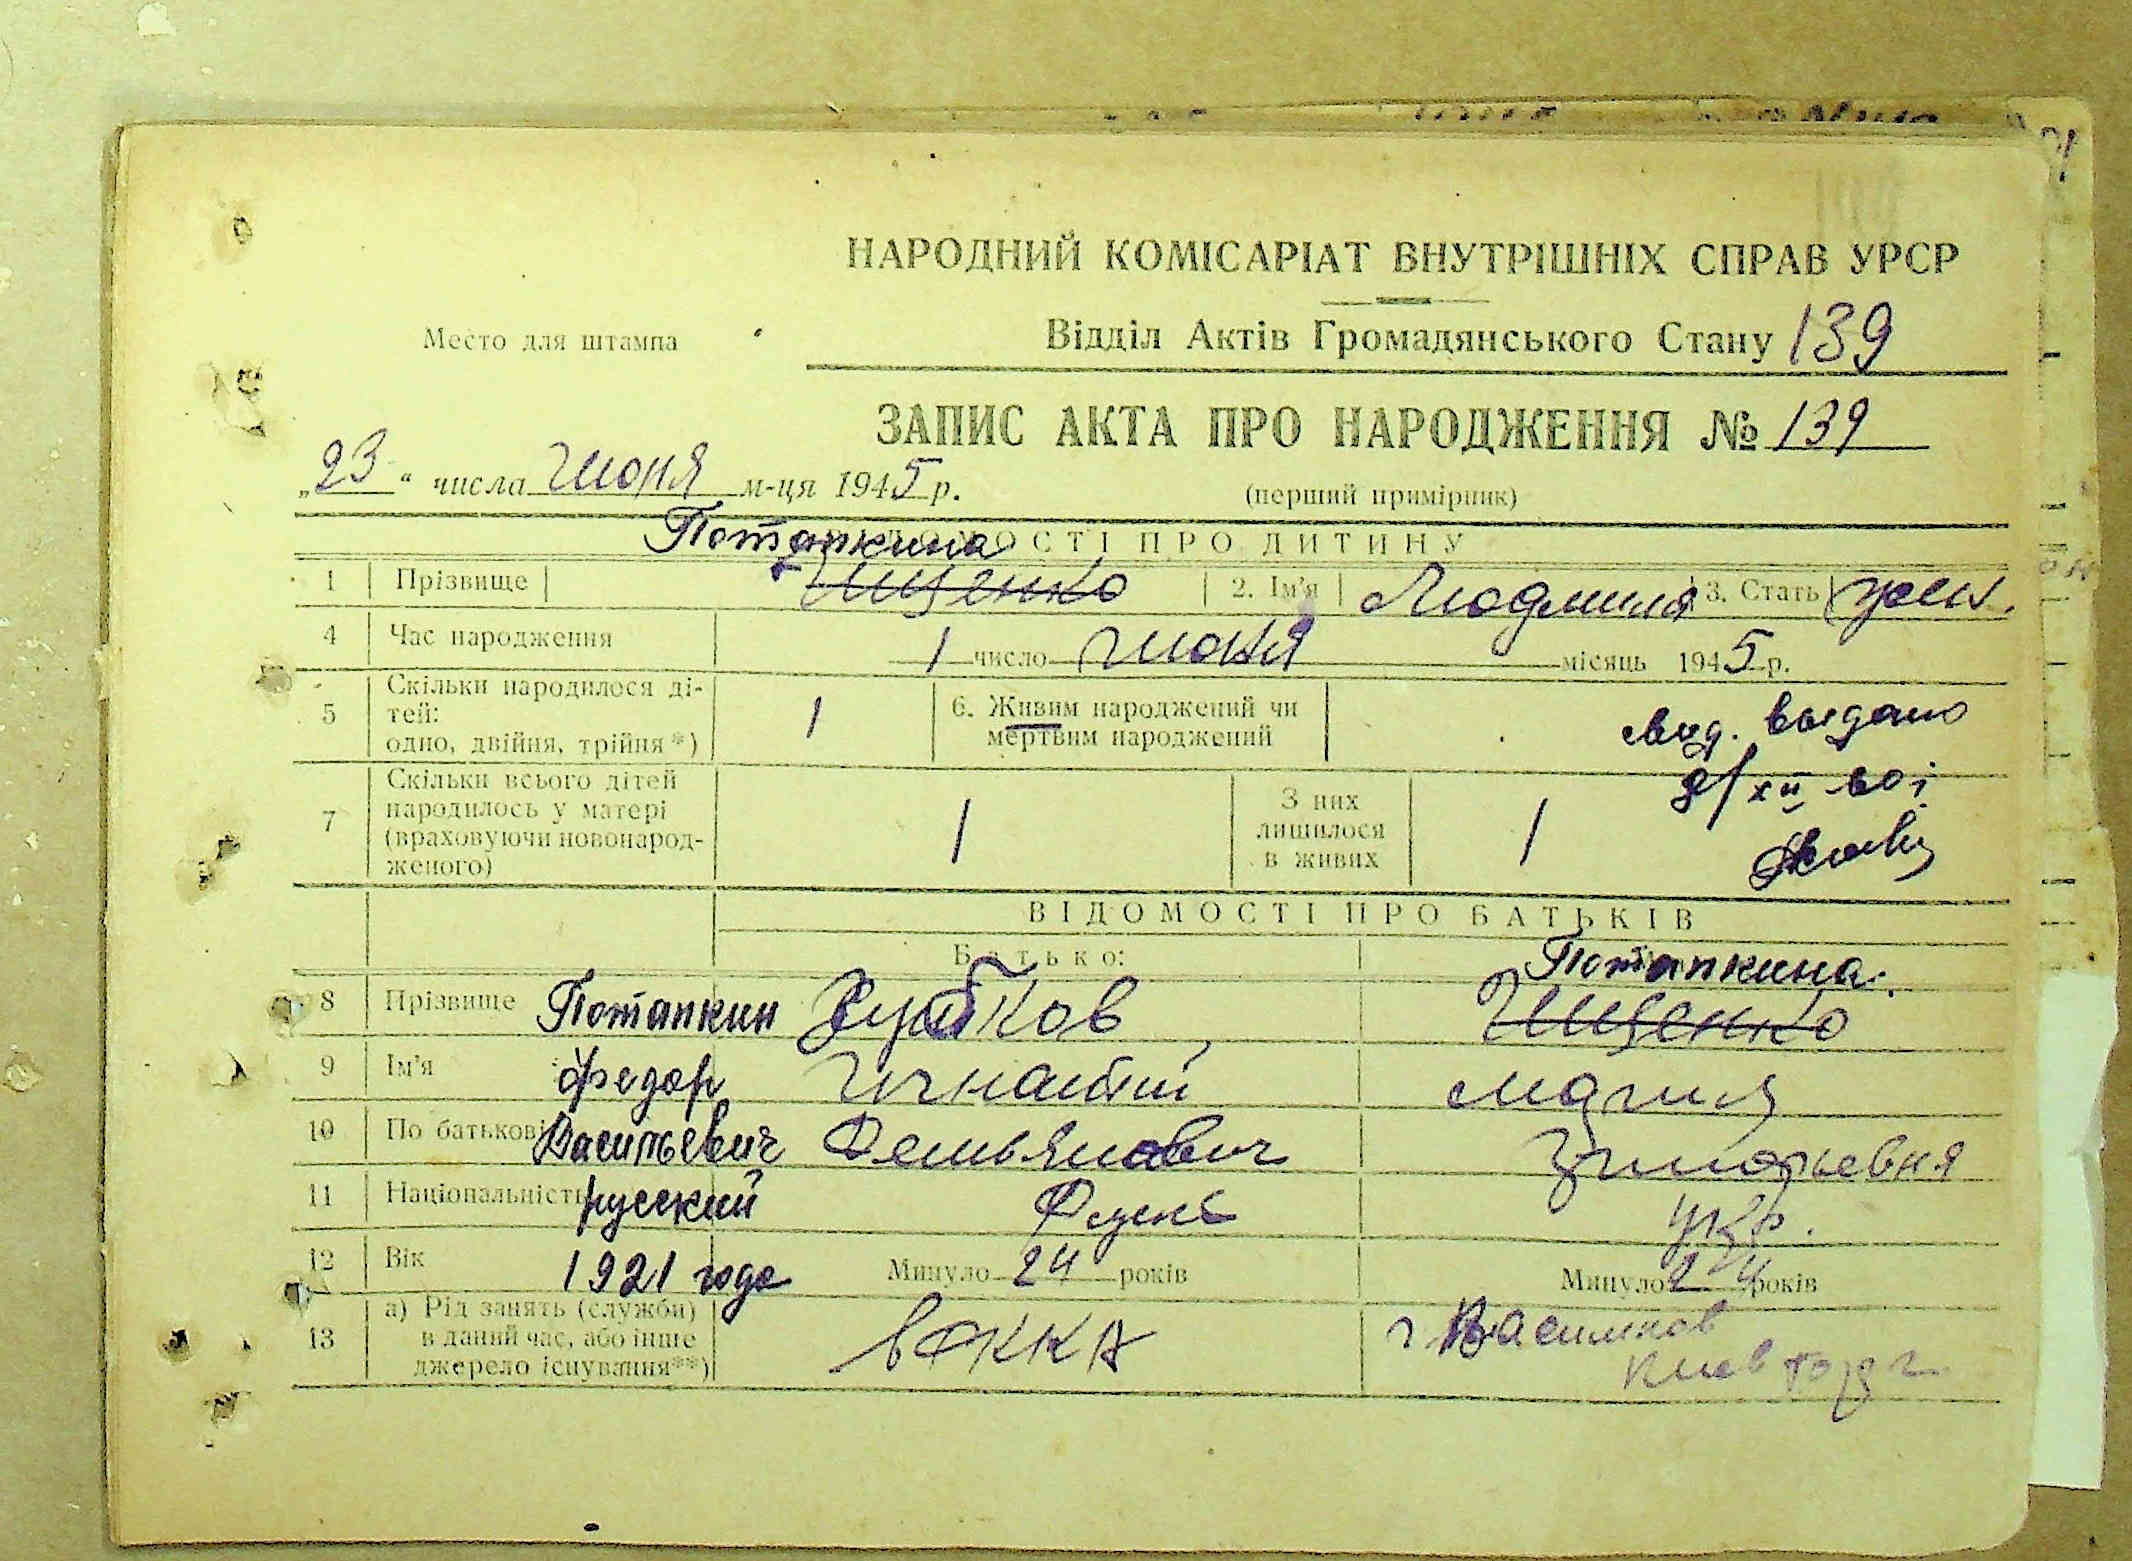 НАРОДНИЙ КОМІСАРІАТ ВНУТРІШНІХ СПРАВ УРСР
Место для штампа
Відділ Актів Громадянського Стану 139
ЗАПИС АКТА ПРО НАРОДЖЕННЯ № 139
„23“ числа Июня м-ця 1945 р.
(перший примірник)
Потапкина
ОСТІ ПРО ДИТИНУ
1 Прізвище Ищенко 2. Ім'я Людмила 3. Стать жен.
4 Час народження 1 число Июня місяць 1945 р.
5 Скільки народилося ді-
тей:
одно, двійня, трійня*) 1 6. Живим народжений чи
мертвим народжений
свид. выдано
7 Скільки всього дітей
народилось у матері
(враховуючи новонарод-
женого) 1 З них
лишилося
в живих 1
ВІДОМОСТІ ПРО БАТЬКІВ
Батько:
Потапкина
8 Прізвище Потапкин Зубков Ищенко
9 Ім'я Федор Игнатий Мария
10 По батькові Васильевич Демьянович Григорьевня
11 Національність русский укр.
12 Вік 1921 года Минуло 24 років Минуло 24 років
13 а) Рід занять (служби)
в даний час, або інше
джерело існування**)
в РККА
г Васильков
Киев